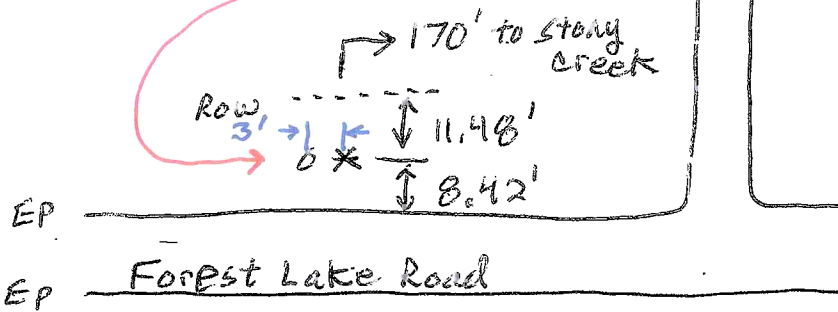 170' to Stony
Creek
Row
3'
11.48'
8.42'
EP
Forest Lake Road
EP